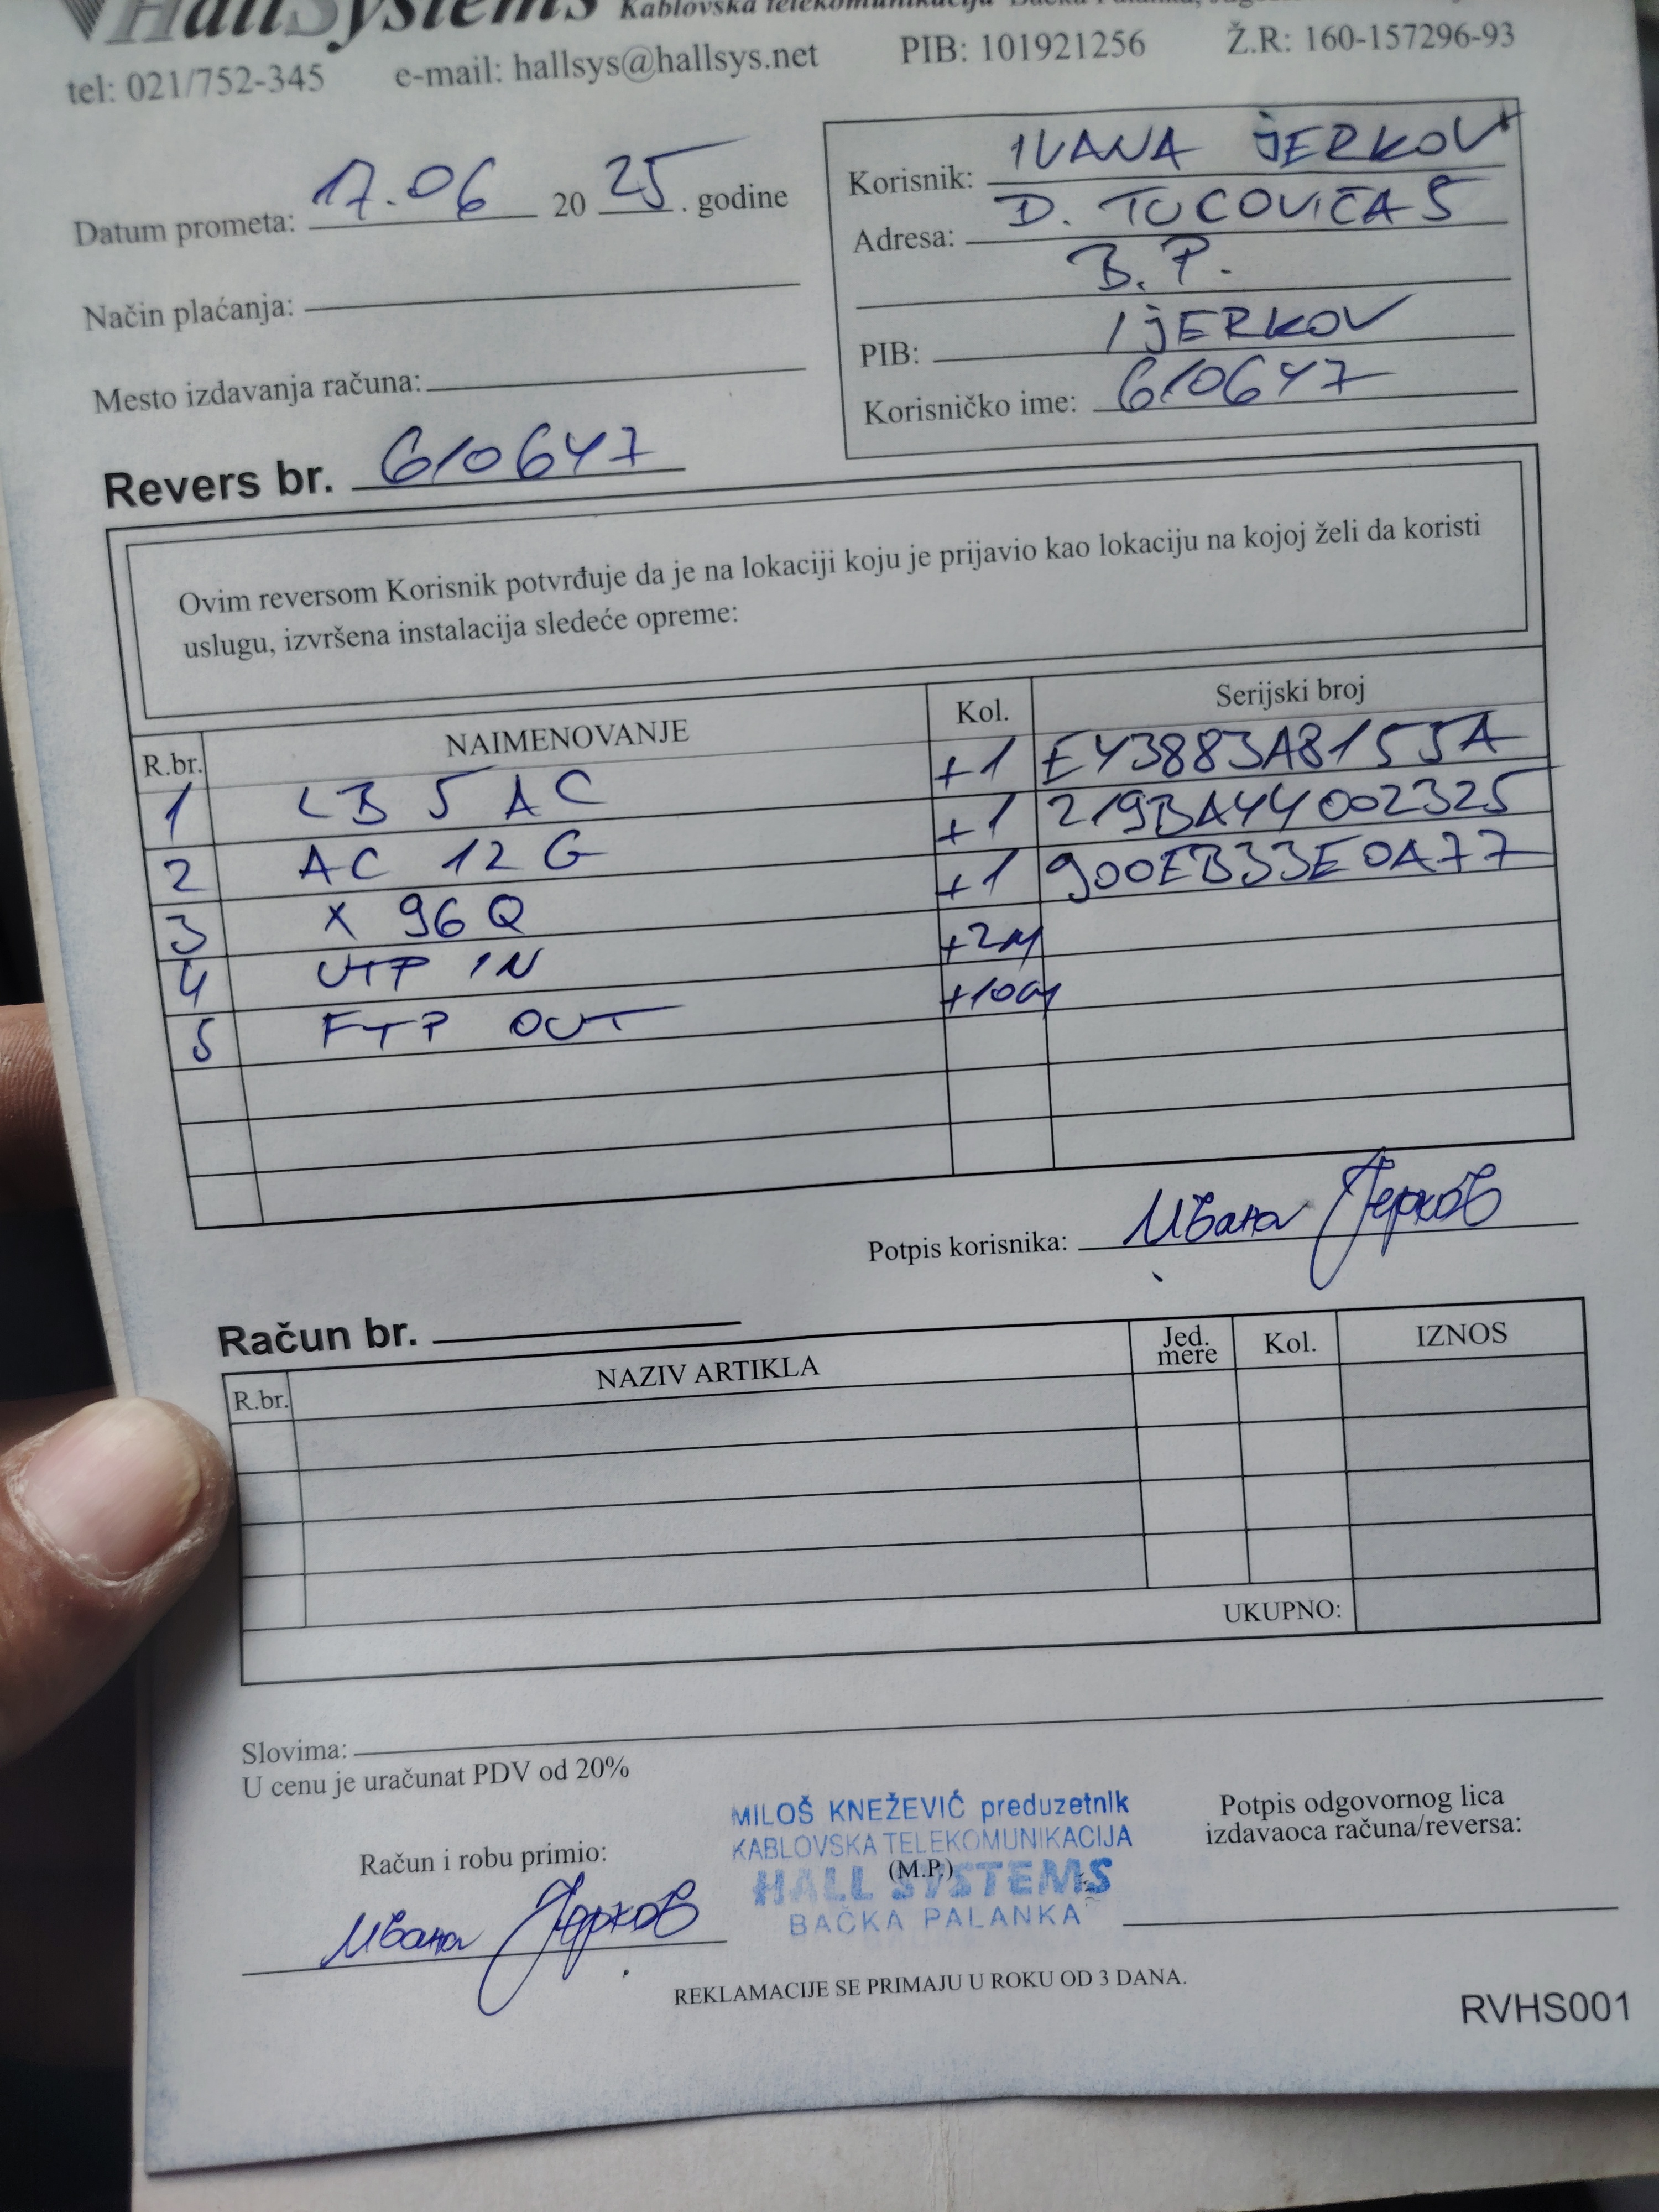 HallSystems Kablovska telekomunikacija Bačka Palanka,
tel: 021/752-345 e-mail: hallsys@hallsys.net PIB: 101921256 Ž.R: 160-157296-93
Datum prometa: 17.06 2025. godine
Način plaćanja:
Mesto izdavanja računa:
Korisnik: IVANA JERKOV
Adresa: D. TUCOVIĆA 5
B.P.
PIB: IJERKOV
Korisničko ime: 610647
Revers br. 610647
Ovim reversom Korisnik potvrđuje da je na lokaciji koju je prijavio kao lokaciju na kojoj želi da koristi
uslugu, izvršena instalacija sledeće opreme:
R.br. NAIMENOVANJE Kol. Serijski broj
1 LB 5 AC +1 E43883A8155A
2 AC 12 G +1 219BA44002325
3 X 96Q +1 900EB33E0A77
4 UTP IN +2м
5 FTP OUT +10м
Potpis korisnika: Ивана Јерков
Račun br.
R.br. NAZIV ARTIKLA Jed. mere Kol. IZNOS
UKUPNO:
Slovima:
U cenu je uračunat PDV od 20%
Račun i robu primio:
Ивана Јерков
MILOŠ KNEŽEVIĆ preduzetnik
KABLOVSKA TELEKOMUNIKACIJA
(M.P.)
HALL SYSTEMS
BAČKA PALANKA
Potpis odgovornog lica
izdavaoca računa/reversa:
REKLAMACIJE SE PRIMAJU U ROKU OD 3 DANA.
RVHS001